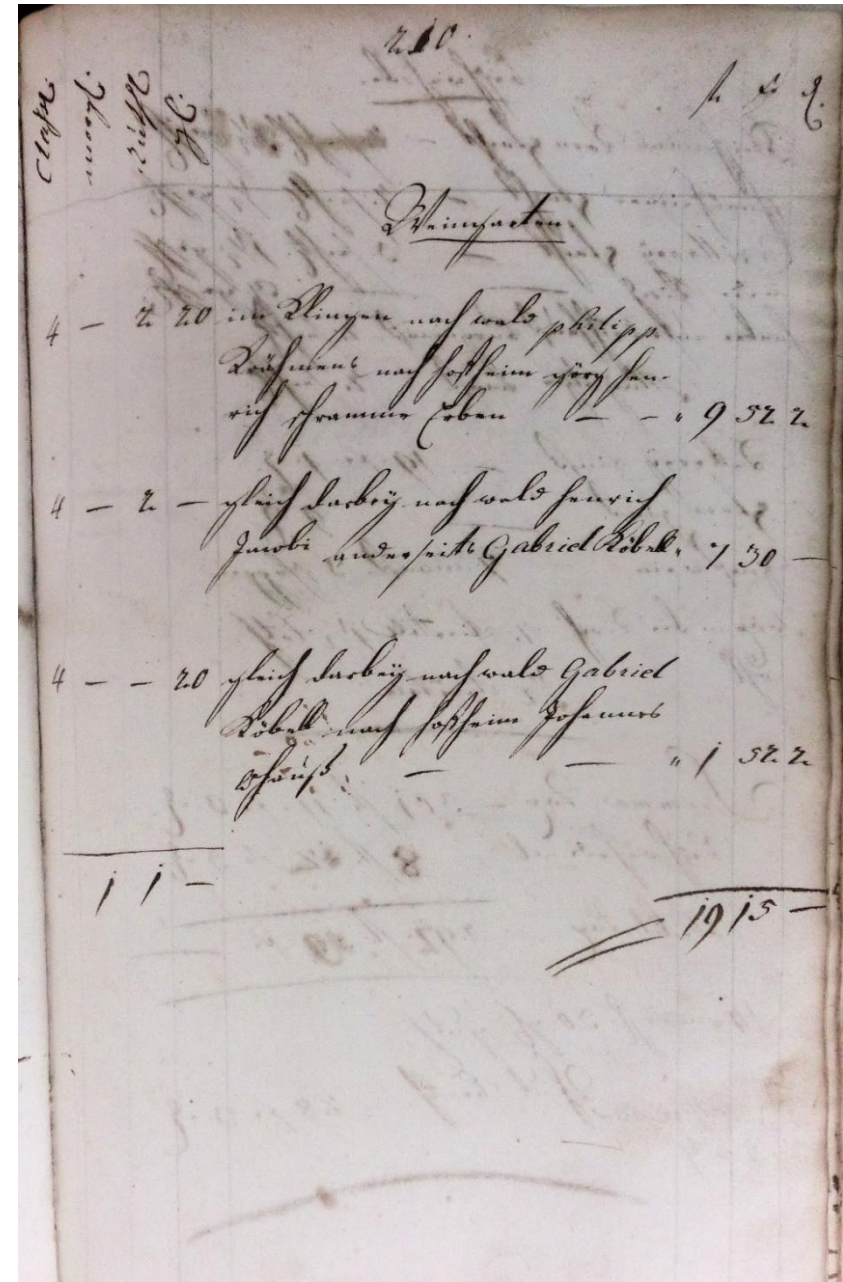 210.
Classe
fl x d.
Weingarten.
4 — 2 20 im Klingen nach wald philipp
nach hoßheim görg hen-
rich schramme Erben — — " 9 52 2
4 — 2 — gleich darbey nach wald henrich
Jacobi anderseits Gabriel Köbell " 7 30 —
4 — — 20 gleich darbey nach wald Gabriel
Köbell nach hoßheim Johannes
— — " 1 52 2
1 1 —
19 15 —